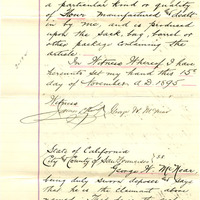 a particular kind or quality
of flour manufactured & dealt
in by me, and is produced
upon the sack, bag, barrel or
other package containing the
article.
In Witness Whereof I have
hereunto set my hand this 15th
day of November A.D. 1895
Witness
George W. McNear
State of California
City & County of San Francisco } ss.
George W. McNear
being duly sworn deposes & says
that he is the claimant above